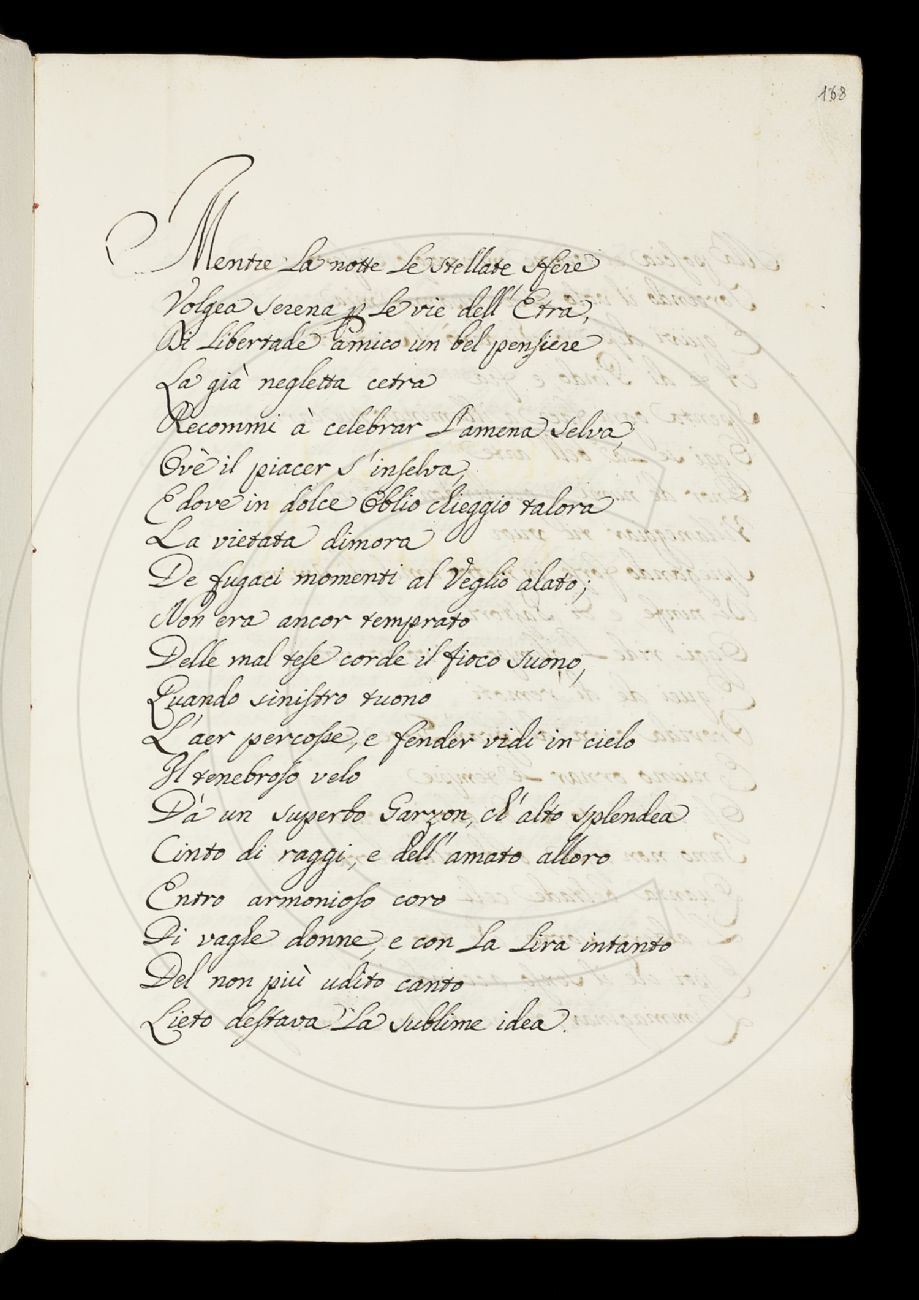 168
Mentre la notte le stellate sfere
Volgea serena p le vie dell' Etra,
Di libertade amico un bel pensiere
La già negletta cetra
Recommi à celebrar l'amena selva,
Ov'è il piacer s'inselva,
E dove in dolce obblio chieggio talora
La vietata dimora
De fugaci momenti al Veglio alato;
Non era ancor temprato
Delle mal tese corde il fioco suono,
Quando sinistro tuono
L'aer percosse, e fender vidi in cielo
Il tenebroso velo
Dà un superbo Garzon, ch'alto splendea
Cinto di raggi, e dell'amato alloro
Entro armonioso coro
Di vaghe donne, e con la lira intanto
Del non più udito canto
Lieto destava la sublime idea.